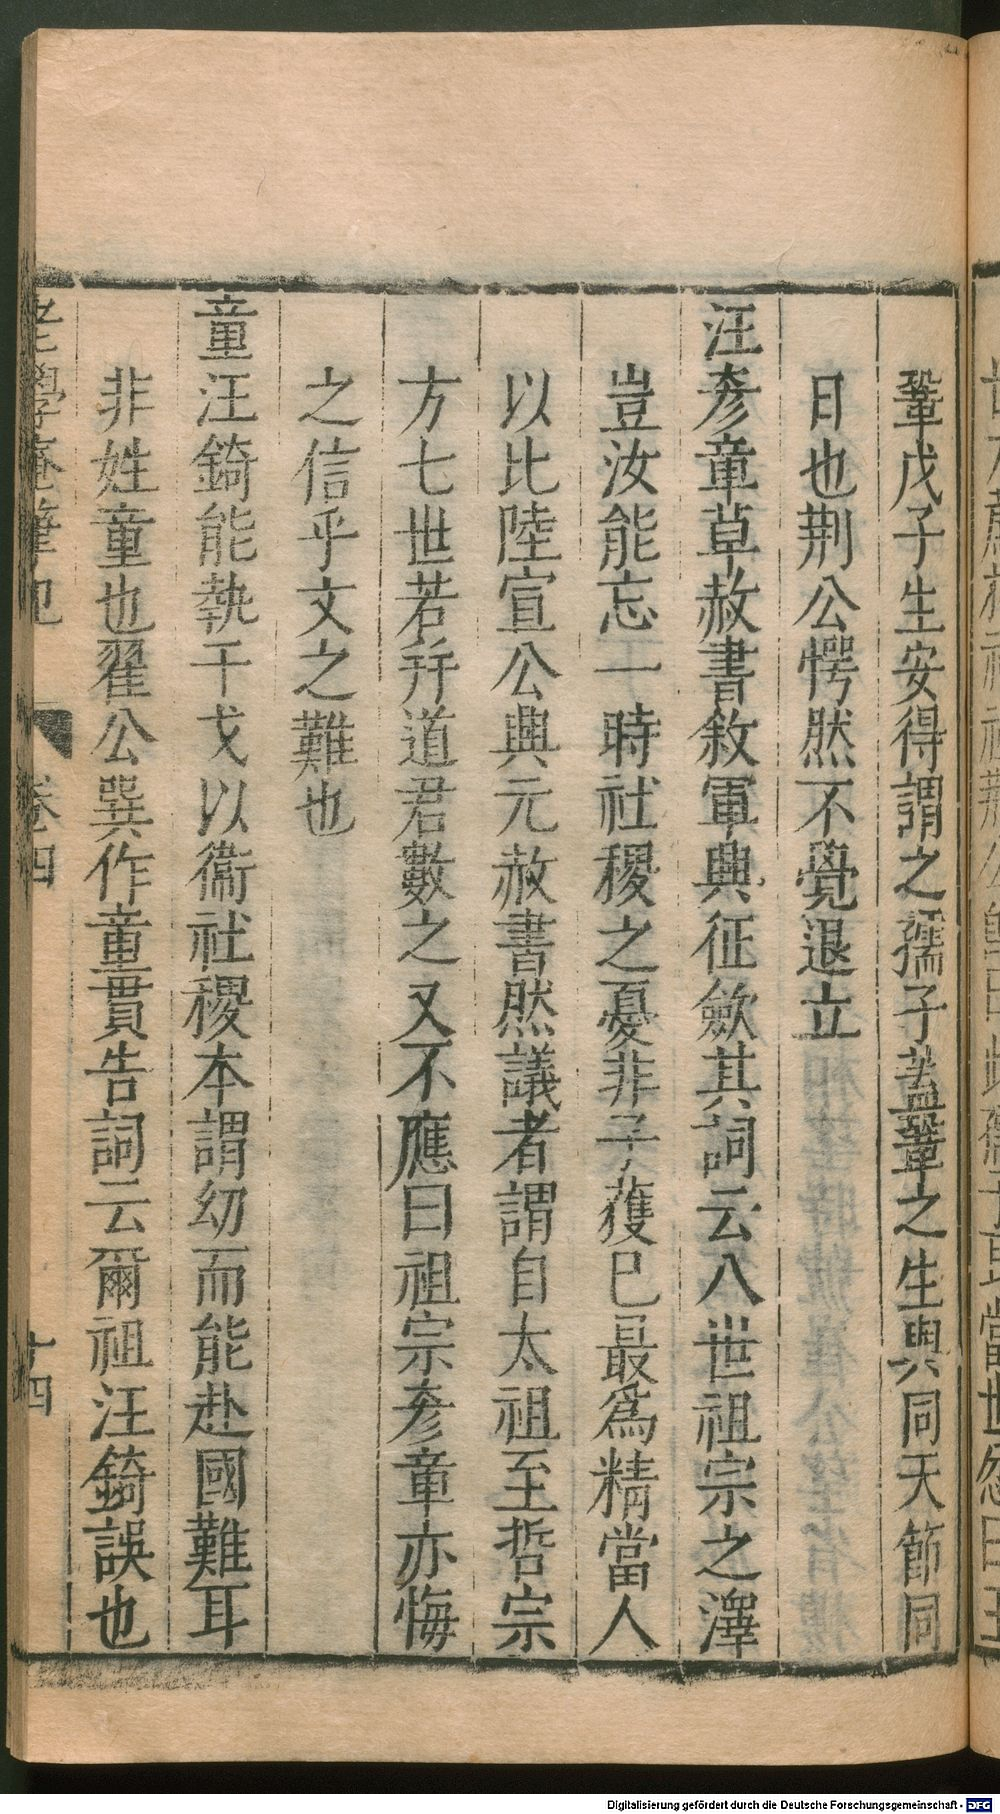 鞏戊子生安得謂之孺子蓋鞏之生與同天節同
日也荆公愕然不覺退立
汪彥章草赦書敘軍興征歛其詞云八世祖宗之澤
豈汝能忘一時社稷之憂非予獲已最爲精當人
以比陸宣公興元赦書然議者謂自太祖至哲宗
方七世若幷道君數之又不應曰祖宗彥章亦悔
之信乎文之難也
童汪錡能執干戈以衞社稷本謂幼而能赴國難耳
非姓童也翟公巽作童貫告詞云爾祖汪錡誤也
老學庵筆記 卷四 十四
Digitalisierung gefördert durch die Deutsche Forschungsgemeinschaft - DFG